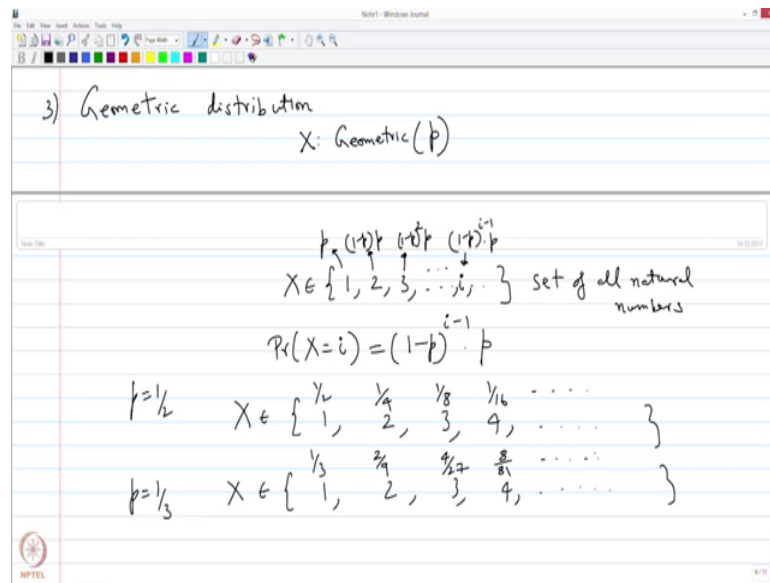 Note1 - Windows Journal
File Edit View Insert Actions Tools Help
Page Width
B I
3) Geometric distribution
X: Geometric(p)
Note Title
p (1-p)p (1-p)²p (1-p)^{i-1}·p
X ∈ { 1, 2, 3, ..., i, .. } set of all natural
numbers
Pr(X=i) = (1-p)^{i-1} · p
1/2 1/4 1/8 1/16 .....
p=1/2 X ∈ { 1, 2, 3, 4, ...... }
1/3 2/9 4/27 8/81 ......
p=1/3 X ∈ { 1, 2, 3, 4, ...... }
NPTEL